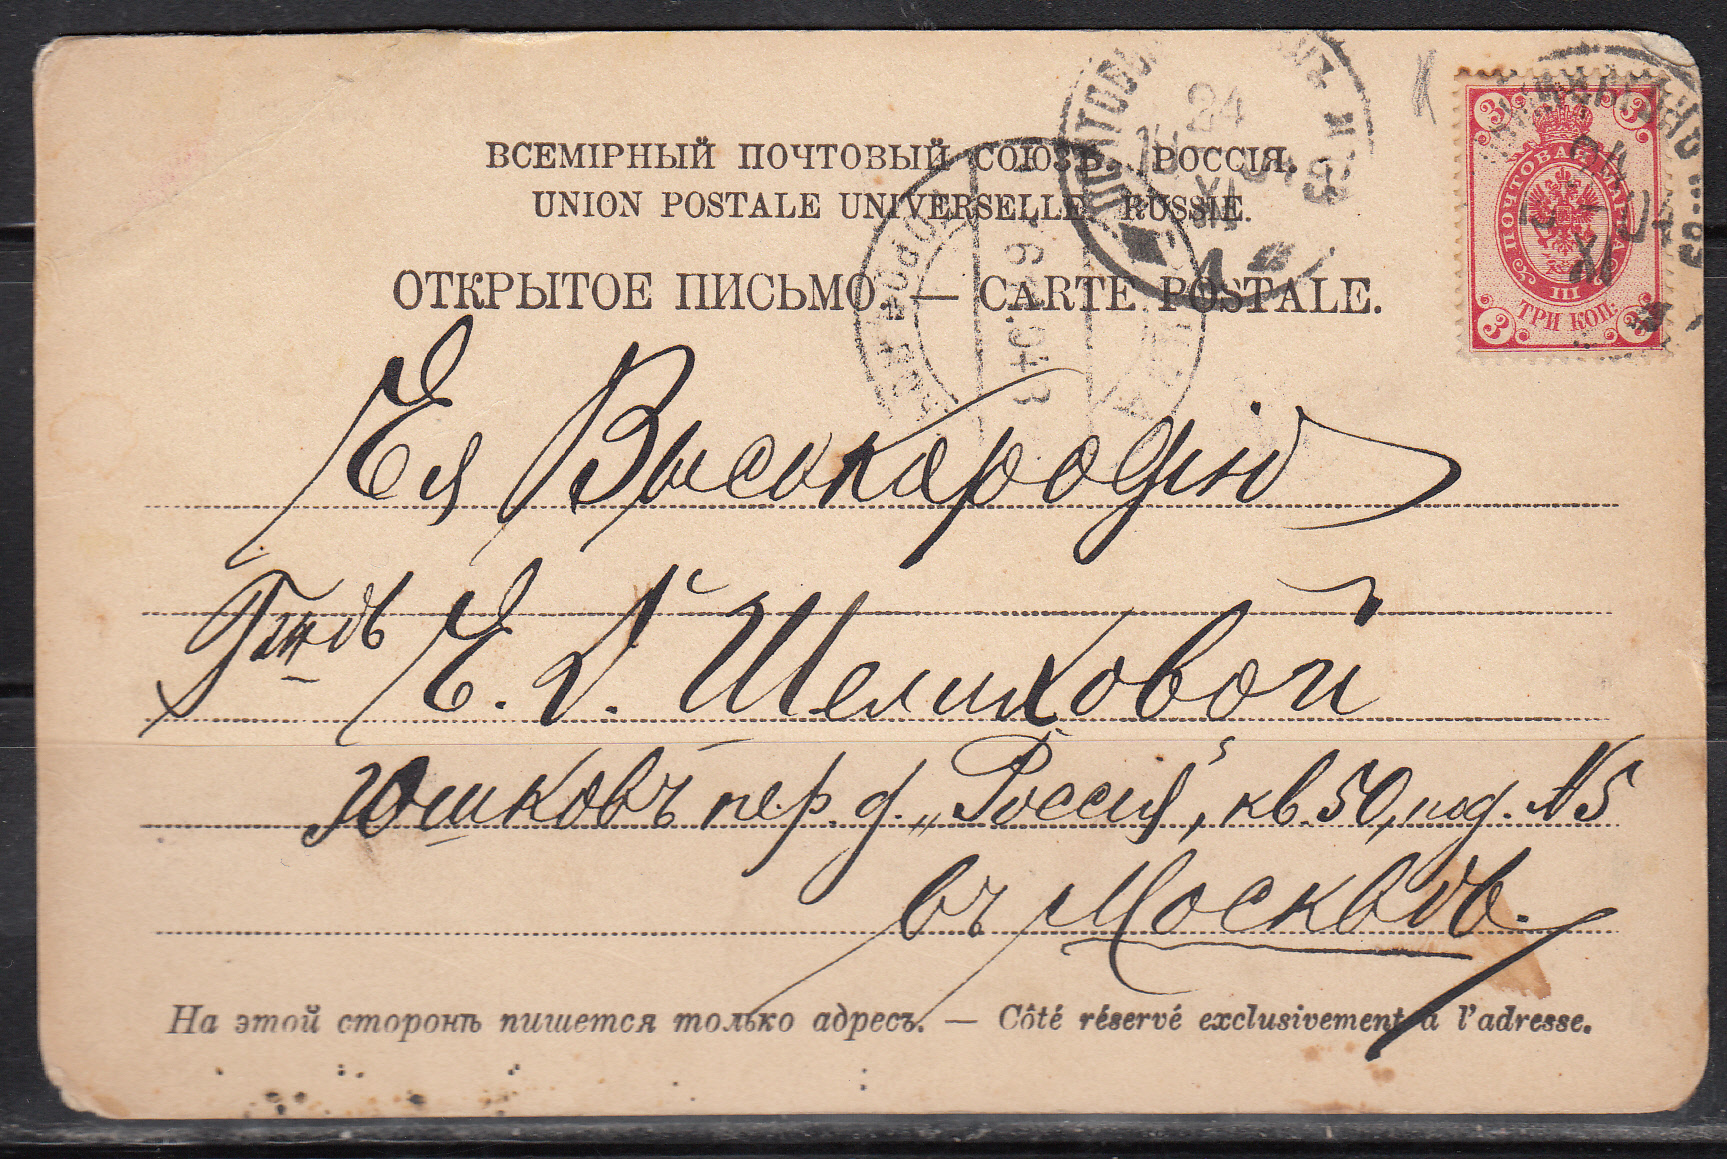 ВСЕМІРНЫЙ ПОЧТОВЫЙ СОЮЗЪ. РОССІЯ.
UNION POSTALE UNIVERSELLE. RUSSIE.
ОТКРЫТОЕ ПИСЬМО. — CARTE POSTALE.
3 3
ПОЧТОВАЯ МАРКА
III
ТРИ КОП.
3 3
24
XI
Ея Высокародію
Гжѣ Е. Д. Шелиховой
Юшковъ пер. д. „Россія", кв. 50, под. № 5
въ Москвѣ.
На этой сторонѣ пишется только адресъ. — Côté réservé exclusivement à l'adresse.